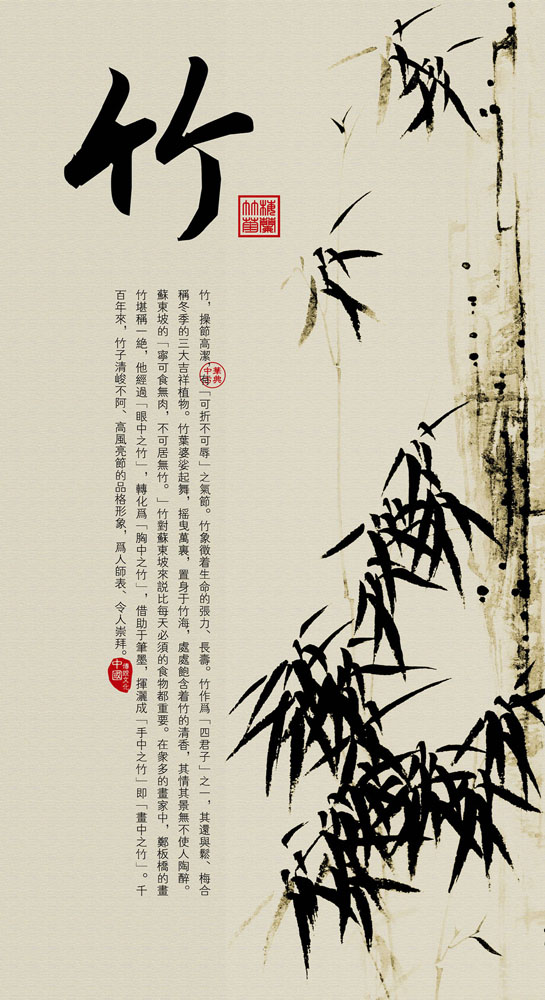 竹
梅蘭竹菊
竹，操節高潔，有「可折不可辱」之氣節。竹象徵着生命的張力、長壽。竹作爲「四君子」之一，其還與鬆、梅合
稱冬季的三大吉祥植物。竹葉婆娑起舞，摇曳萬裏，置身于竹海，處處飽含着竹的清香，其情其景無不使人陶醉。
蘇東坡的「寧可食無肉，不可居無竹。」竹對蘇東坡來説比每天必須的食物都重要。在衆多的畫家中，鄭板橋的畫
竹堪稱一絶，他經過「眼中之竹」，轉化爲「胸中之竹」，借助于筆墨，揮灑成「手中之竹」即「畫中之竹」。千
百年來，竹子清峻不阿、高風亮節的品格形象，爲人師表、令人崇拜。
中國
傳統文化